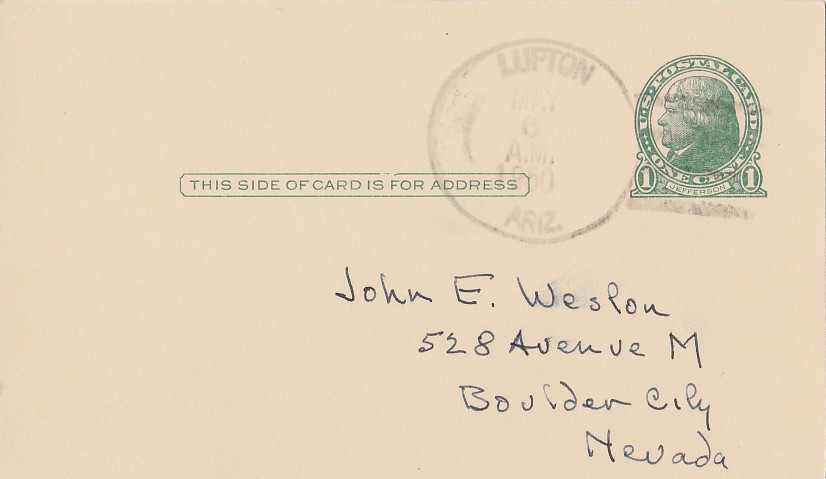 LUPTON
MAY
6
A.M.
1950
ARIZ.
U.S. POSTAL CARD
ONE CENT
1 JEFFERSON 1
THIS SIDE OF CARD IS FOR ADDRESS
John E. Weslon
528 Avenue M
Boulder City
Nevada